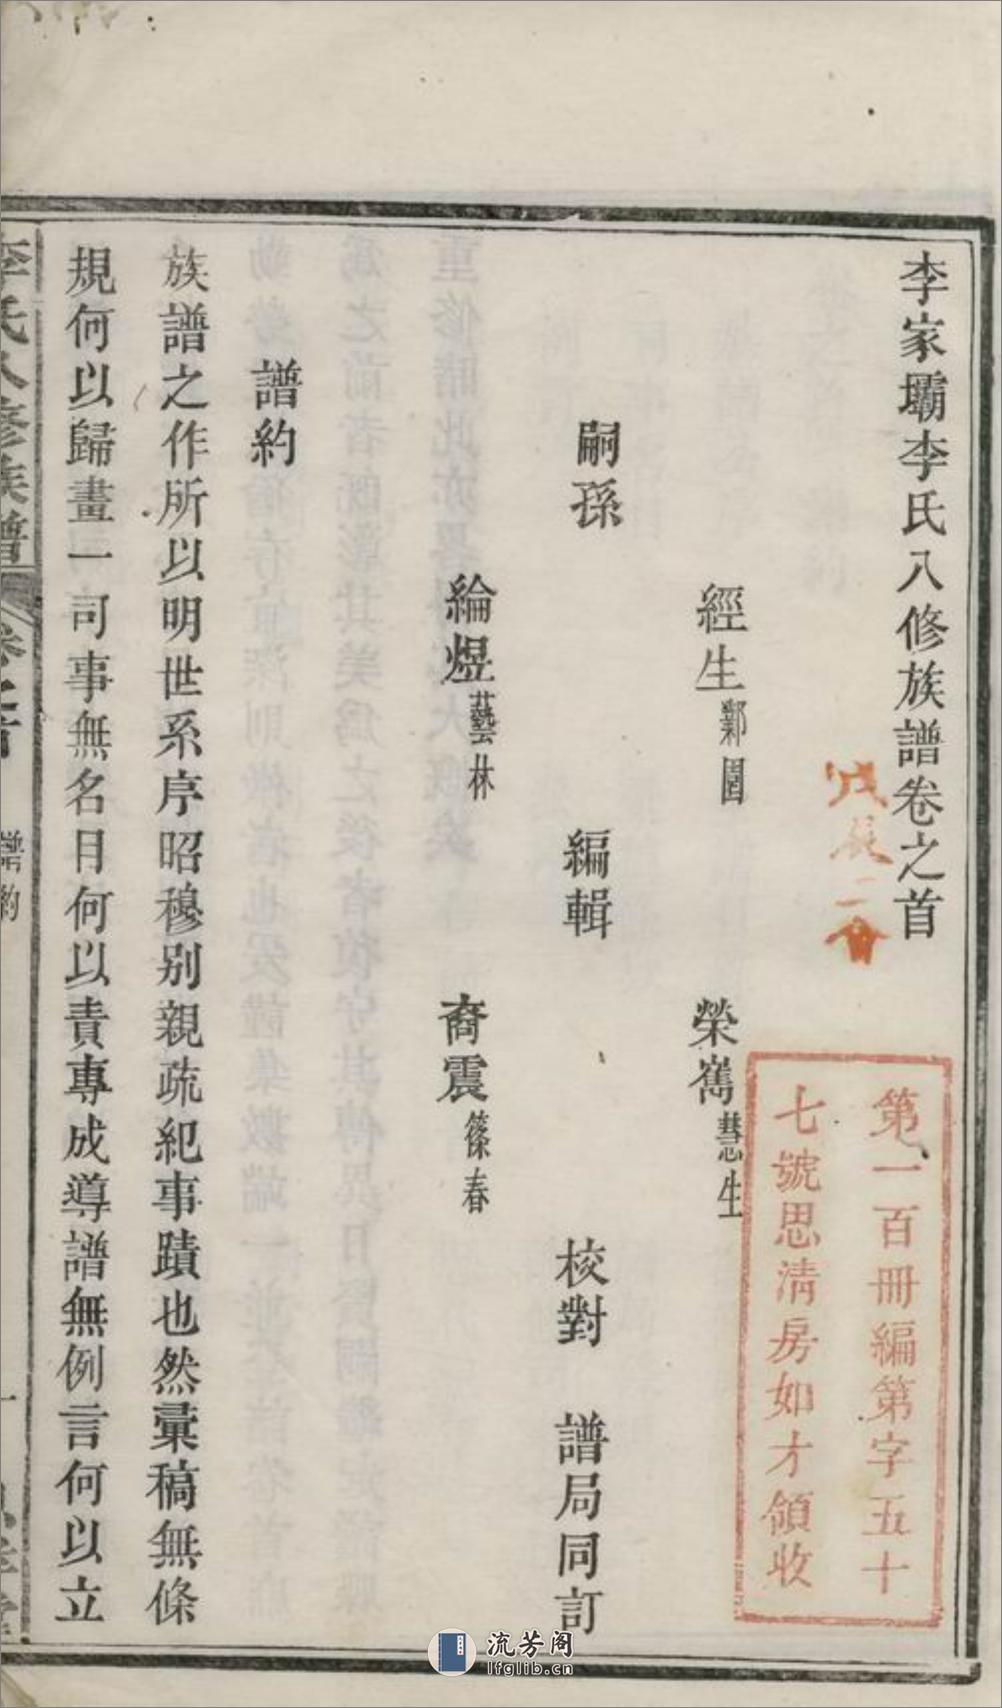 李家壩李氏八修族譜卷之首
戊辰二會
第一百冊編第字五十
七號思清房如才領收
經生鄴園
榮嶲慧生
嗣孫 編輯 校對 譜局同訂
綸煜藝林
裔震篠春
譜約
族譜之作所以明世系序昭穆別親疏紀事蹟也然彙稿無條
規何以歸畫一司事無名目何以責專成導譜無例言何以立
李氏八修族譜 卷之首 譜約 一
流芳阁
lfglib.cn